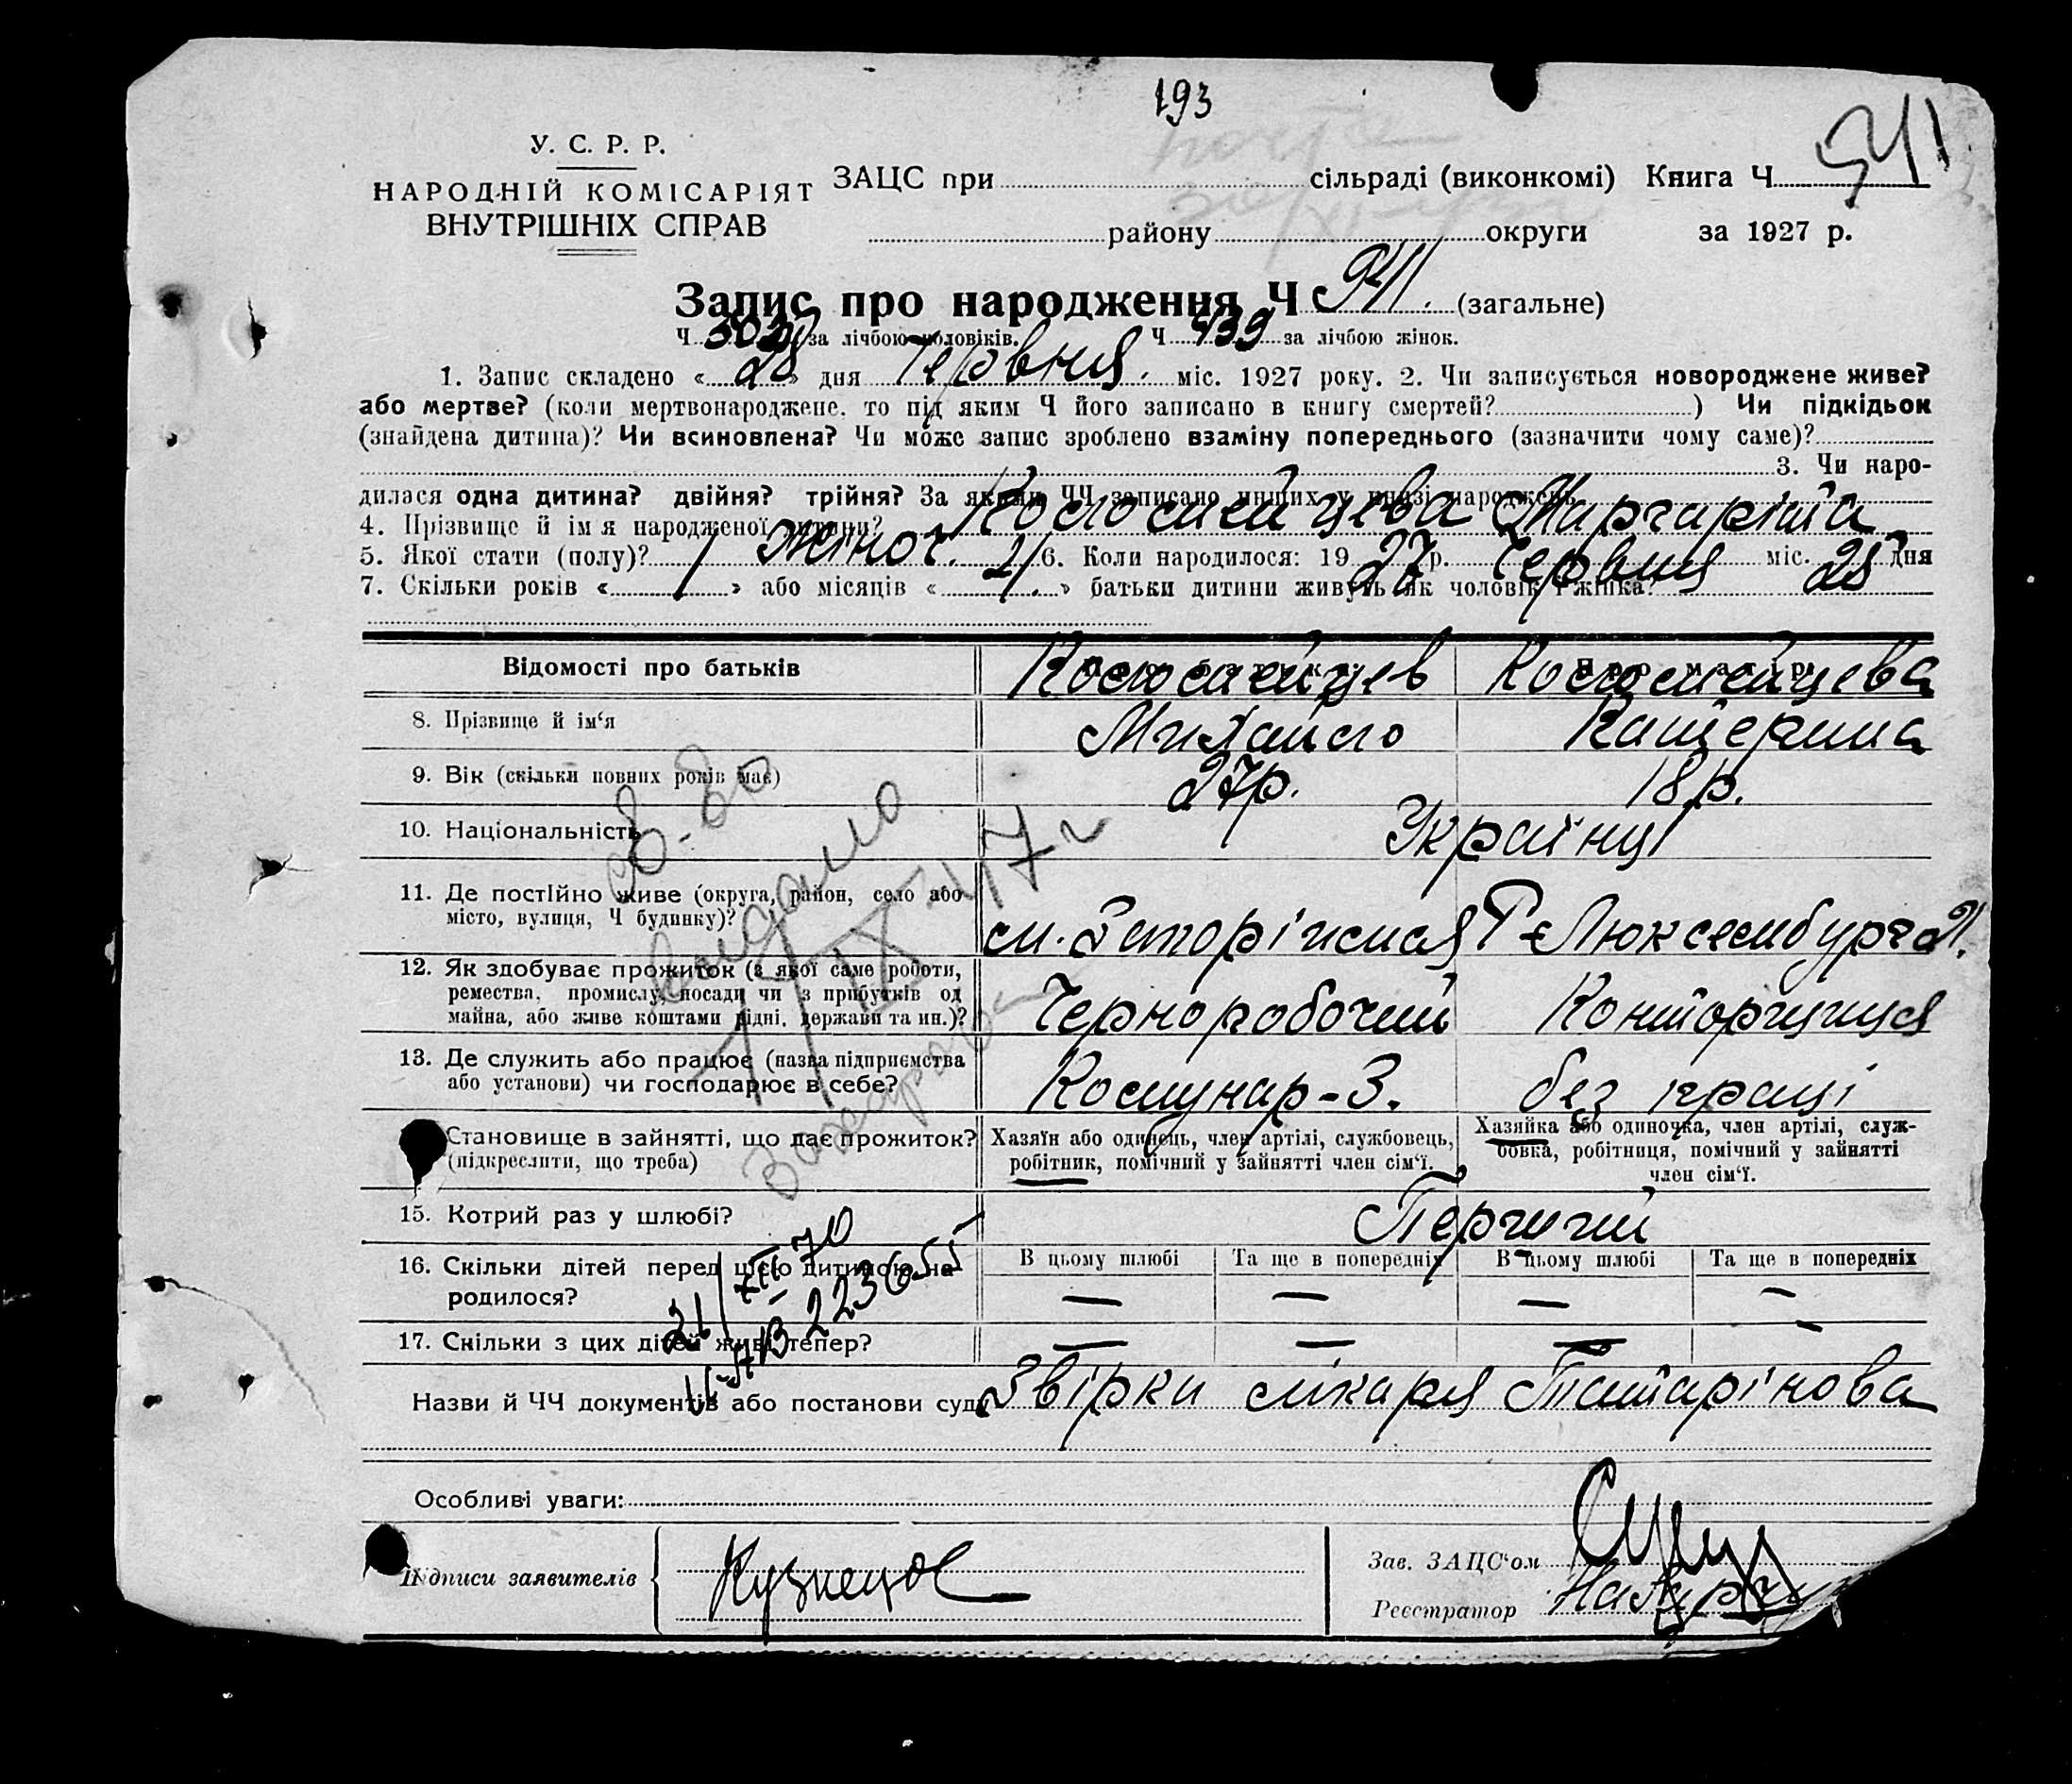 193
У. С. Р. Р.
НАРОДНІЙ КОМІСАРІЯТ
ВНУТРІШНІХ СПРАВ
ЗАЦС при сільраді (виконкомі) Книга Ч
району округи за 1927 р.
Запис про народження Ч 941. (загальне)
Ч за лічбою чоловіків. Ч 439 за лічбою жінок.
1. Запис складено « 28 » дня Червня. міс. 1927 року. 2. Чи записується новороджене живе?
або мертве? (коли мертвонароджене, то під яким Ч його записано в книгу смертей? ) Чи підкідьок
(знайдена дитина)? Чи всиновлена? Чи може запис зроблено взаміну попереднього (зазначити чому саме)?
3. Чи наро-
дилася одна дитина? двійня? трійня? За якими ЧЧ записано инших у книзі народжень
4. Прізвище й імя народженої дитини? Маргаріта
5. Якої стати (полу)? жіноч. 6. Коли народилося: 19 27 р. Червня міс. 25 дня
7. Скільки років « 1 » або місяців « » батьки дитини живуть як чоловік і жінка?
Відомості про батьків Про батька Про матір
8. Прізвище й ім‘я Михайло Катерина
9. Вік (скільки повних років має) 27р. 18р.
10. Національність Українці
11. Де постійно живе (округа, район, село або
місто, вулиця, Ч будинку)? м. Запоріжжя Р. Люксембург
12. Як здобуває прожиток (з якої саме роботи,
ремества, промислу, посади чи з прибутків од
майна, або живе коштами рідні, держави та ин.)? Черноробочий Конторщиця
13. Де служить або працює (назва підприємства
або установи) чи господарює в себе? Комунар-З. без праці
Становище в зайнятті, що дає прожиток?
(підкреслити, що треба)
Хазяїн або одинець, член артілі, службовець,
робітник, помічний у зайнятті член сім‘ї.
Хазяйка або одиночка, член артілі, служ-
бовка, робітниця, помічний у зайнятті
член сім‘ї.
15. Котрий раз у шлюбі? Перший
16. Скільки дітей перед цією дитиною на-
родилося?
В цьому шлюбі Та ще в попередніх В цьому шлюбі Та ще в попередніх
— — — —
17. Скільки з цих дітей живі тепер? — — — —
Назви й ЧЧ документів або постанови суду Звірки лікаря Татарінова
Особливі уваги:
Підписи заявителів Кузнецов
Зав. ЗАЦС‘ом
Реєстратор
видано